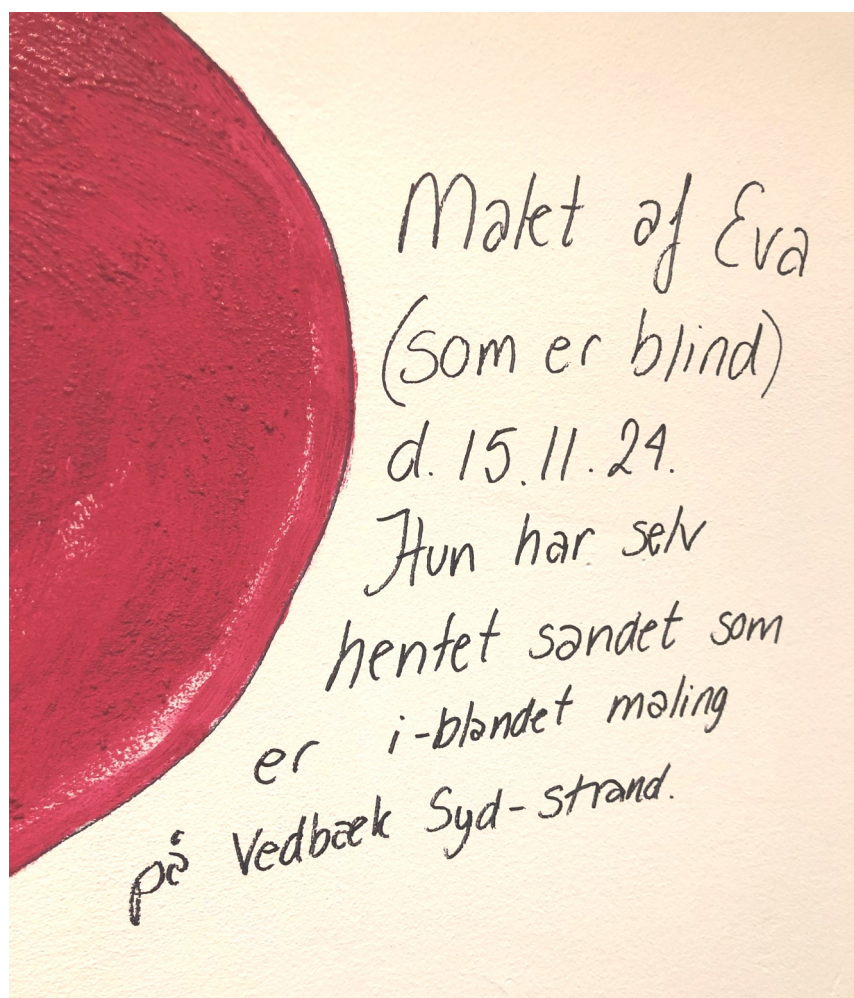 Malet af Eva
(som er blind)
d. 15.11.24.
Hun har selv
hentet sandet som
er i-blandet maling
på Vedbæk Syd-strand.